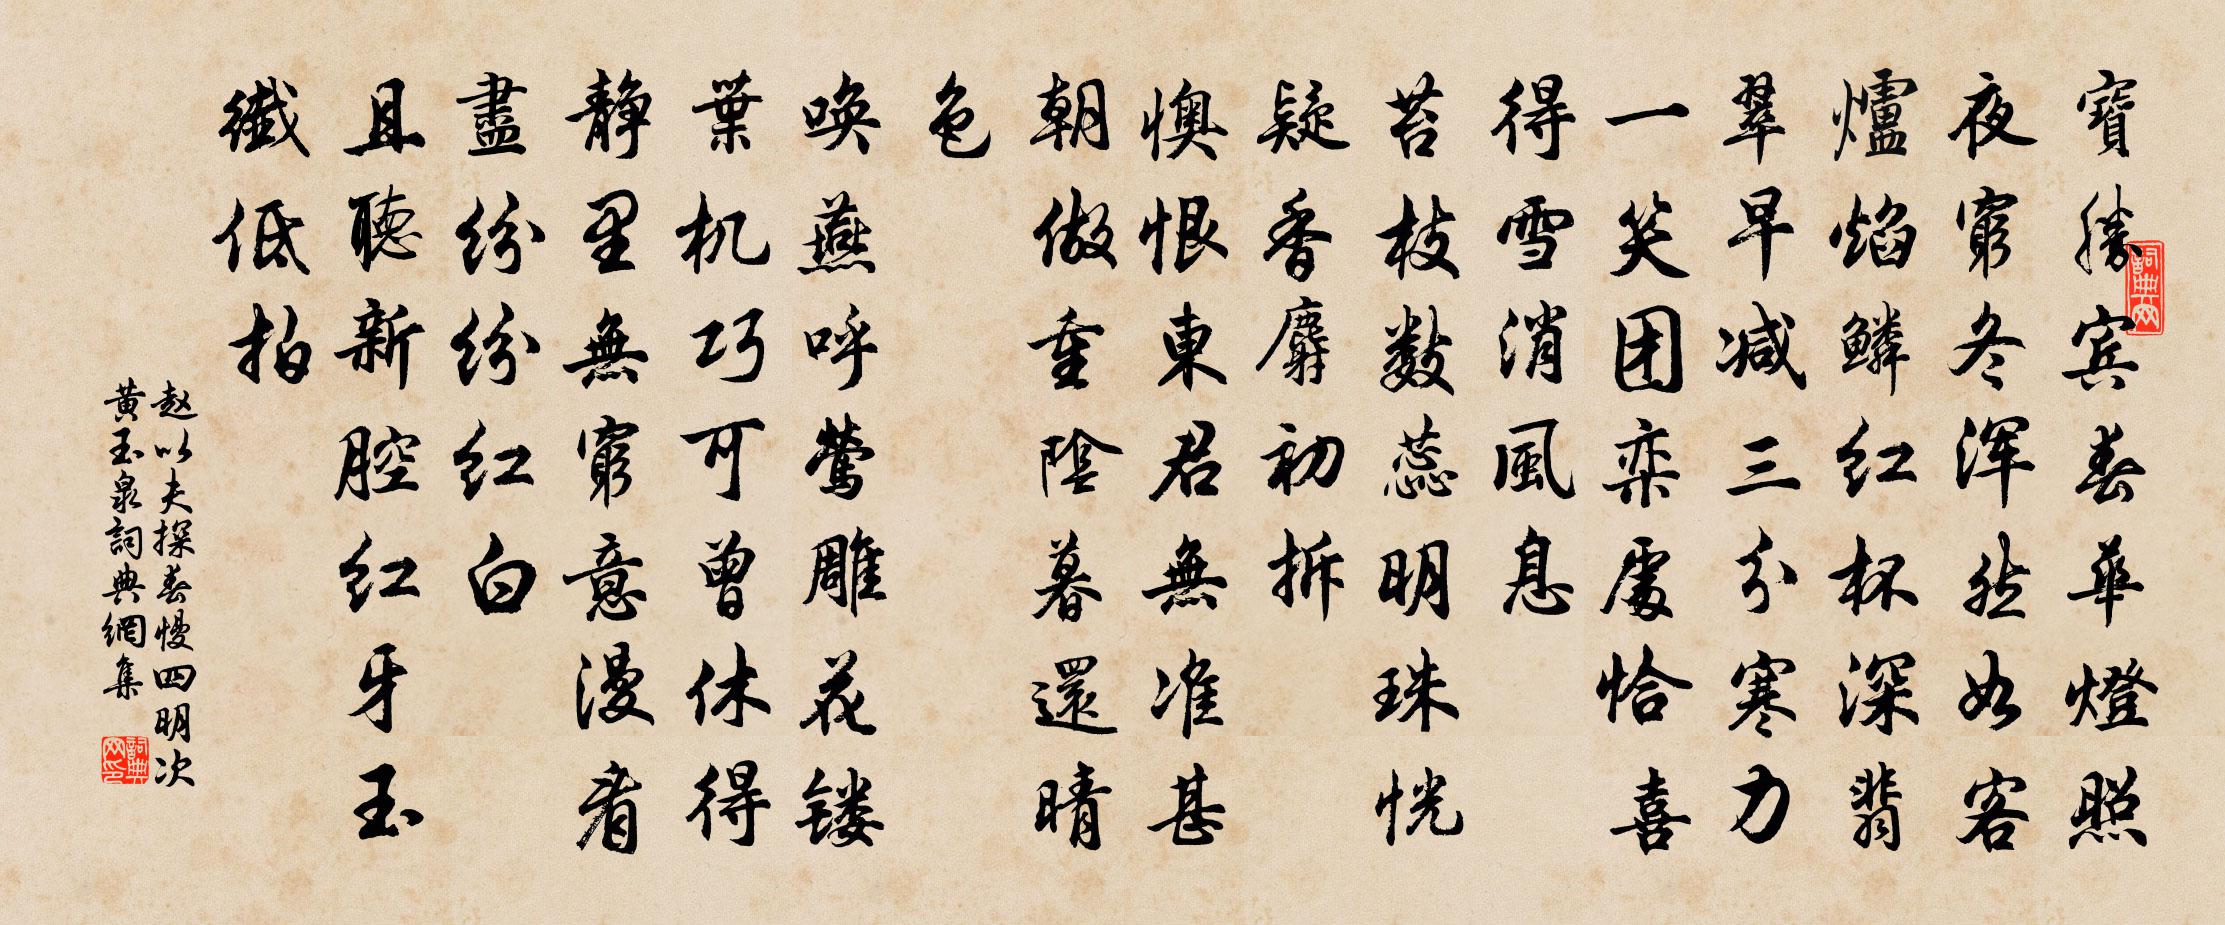 寶勝宾春華燈照
夜窮冬浑然如客
爐焰鱗红杯深翡
翠早减三分寒力
一笑团栾處恰喜
得雪消風息
苔枝数蕊明珠恍
疑香麝初拆
懊恨東君無准甚
朝做重陰暮還晴
色
唤燕呼鶯雕花镂
葉机巧可曾休得
静里無窮意漫看
盡纷纷红白
且聽新腔红牙玉
纖低拍
赵以夫探春慢四明次
黄玉泉詞典網集
詞典网
詞典网印